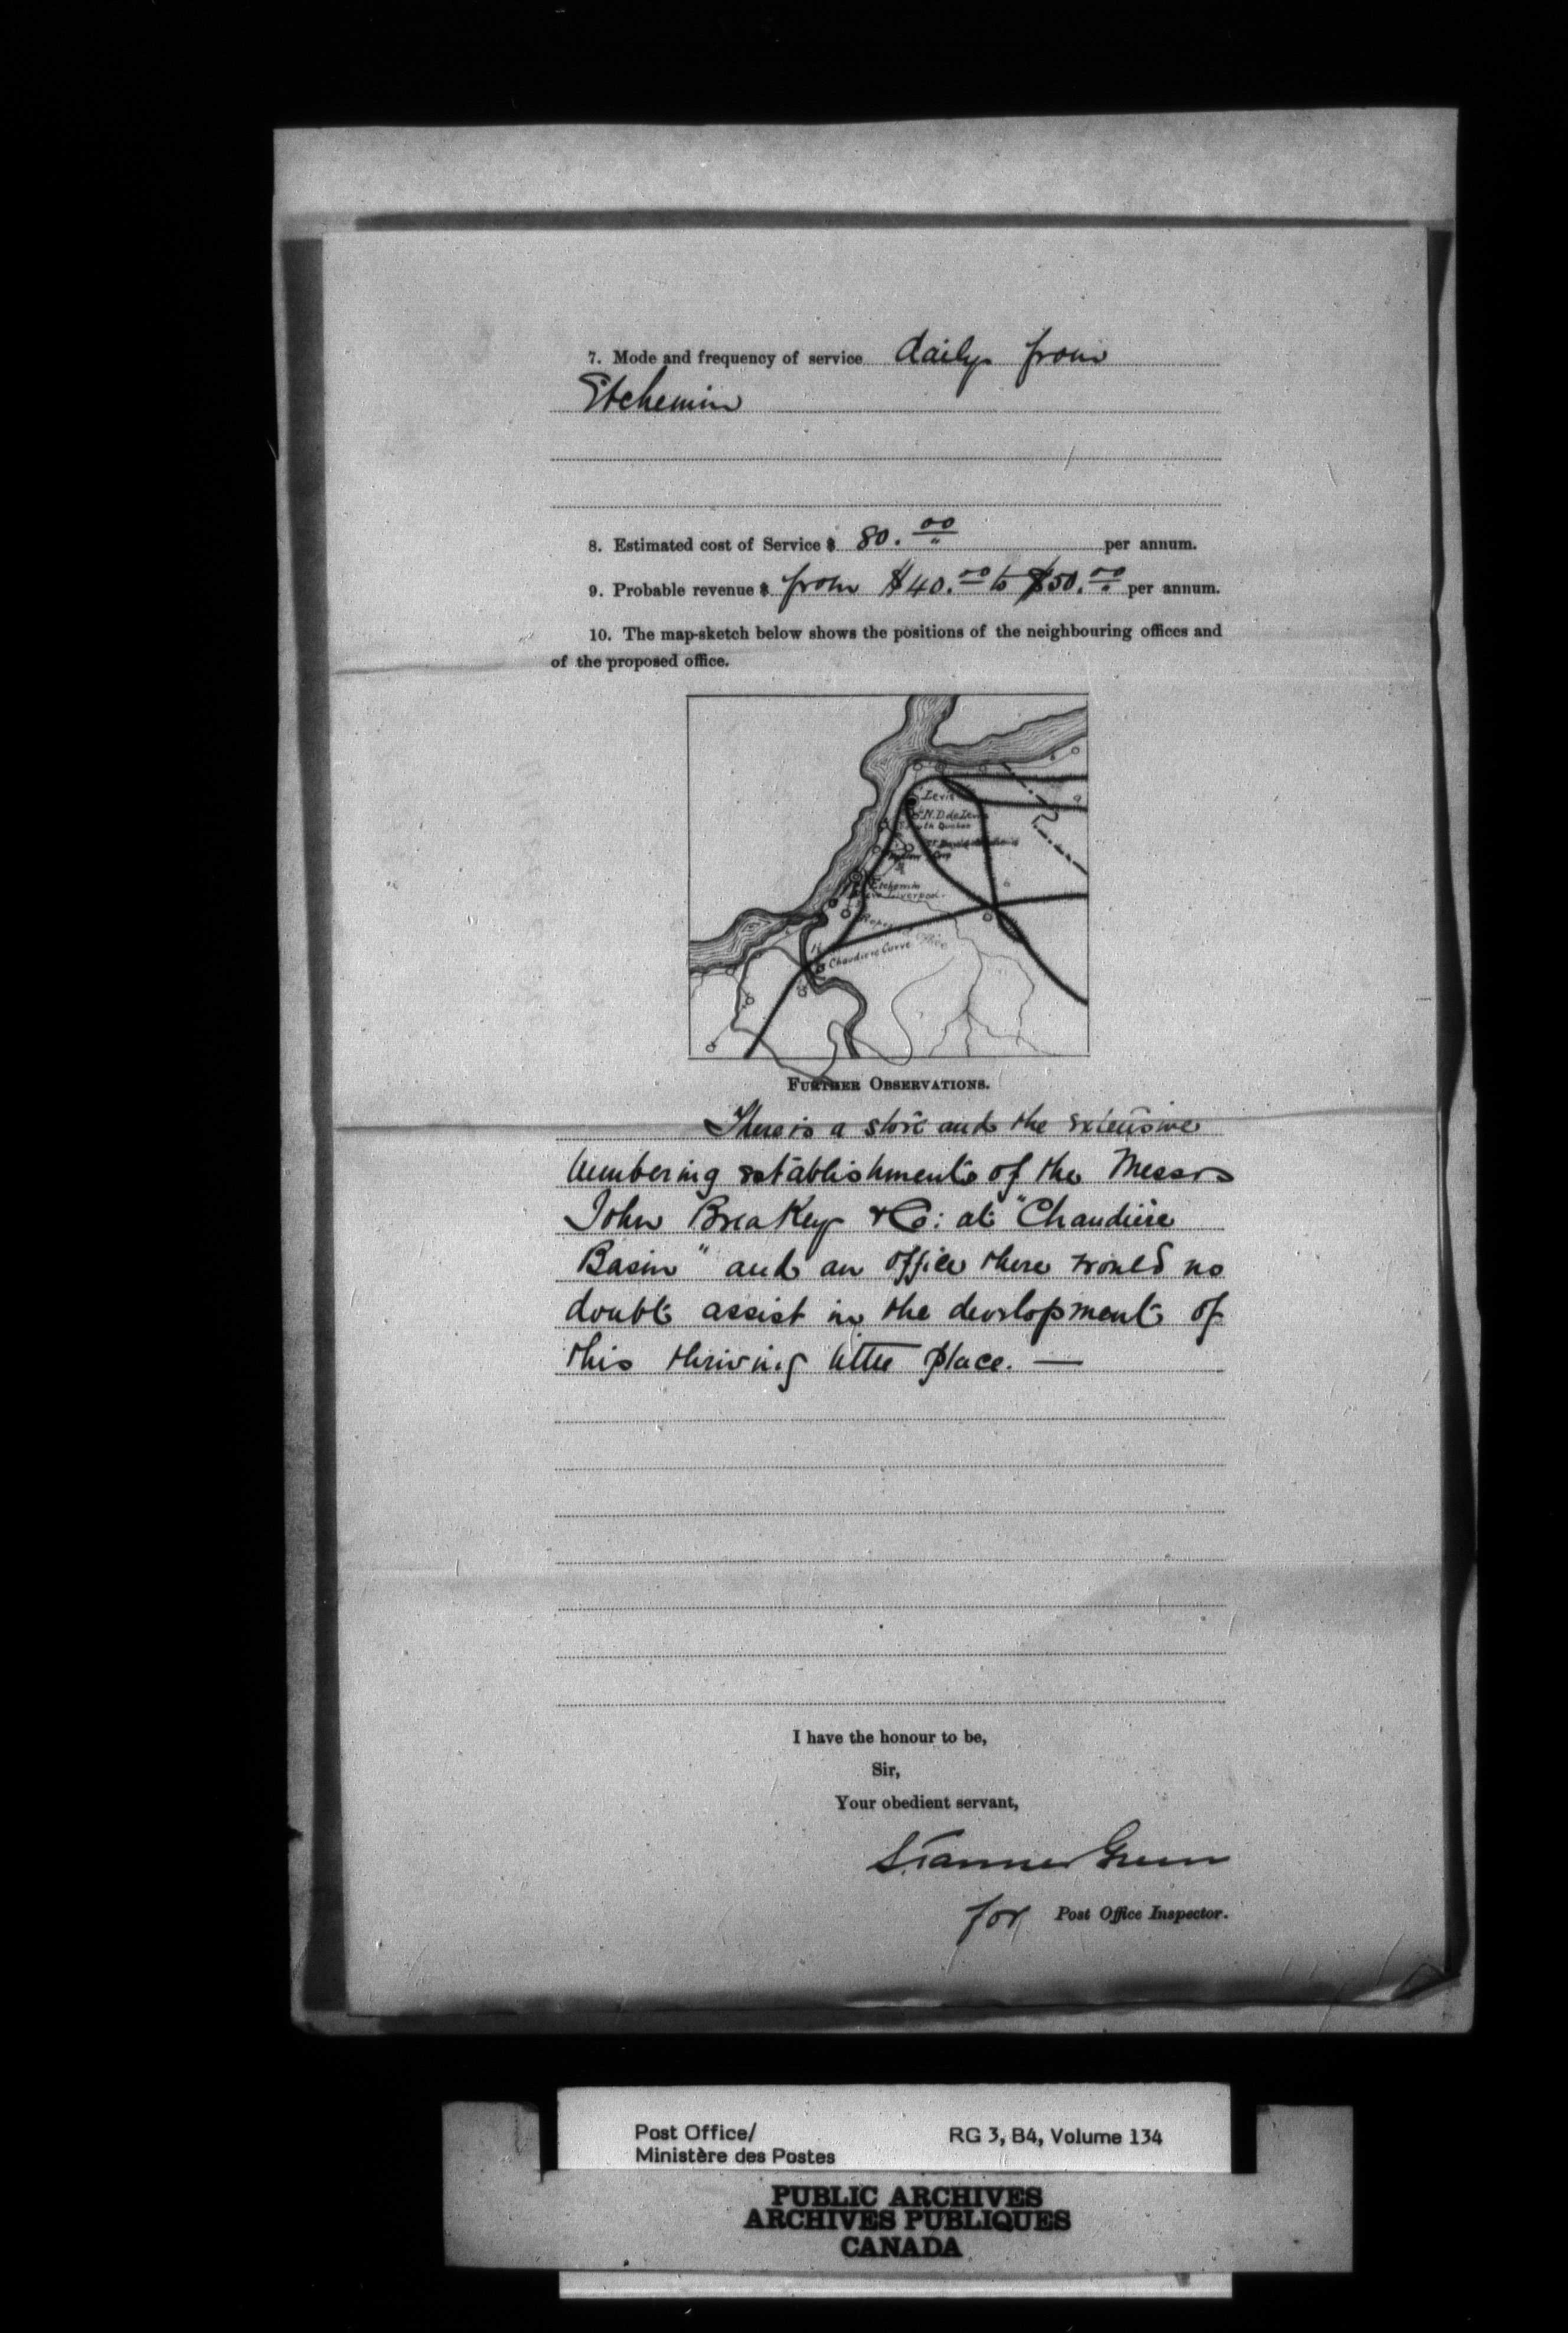 7. Mode and frequency of service daily from
Etchemin
8. Estimated cost of Service $ 80.00 per annum.
9. Probable revenue $ from $40.00 to $50.00 per annum.
10. The map-sketch below shows the positions of the neighbouring offices and
of the proposed office.
Levis
N.D de Levis
South Quebec
Etchemin
New Liverpool
Proposed Office
Chaudiere Curve
FURTHER OBSERVATIONS.
There is a store and the extensive
lumbering establishments of the Messrs
John Breakey & Co: at "Chaudière
Basin" and an office there would no
doubt assist in the development of
this thriving little place. —
I have the honour to be,
Sir,
Your obedient servant,
Green
for Post Office Inspector.
Post Office/ RG 3, B4, Volume 134
Ministère des Postes
PUBLIC ARCHIVES
ARCHIVES PUBLIQUES
CANADA